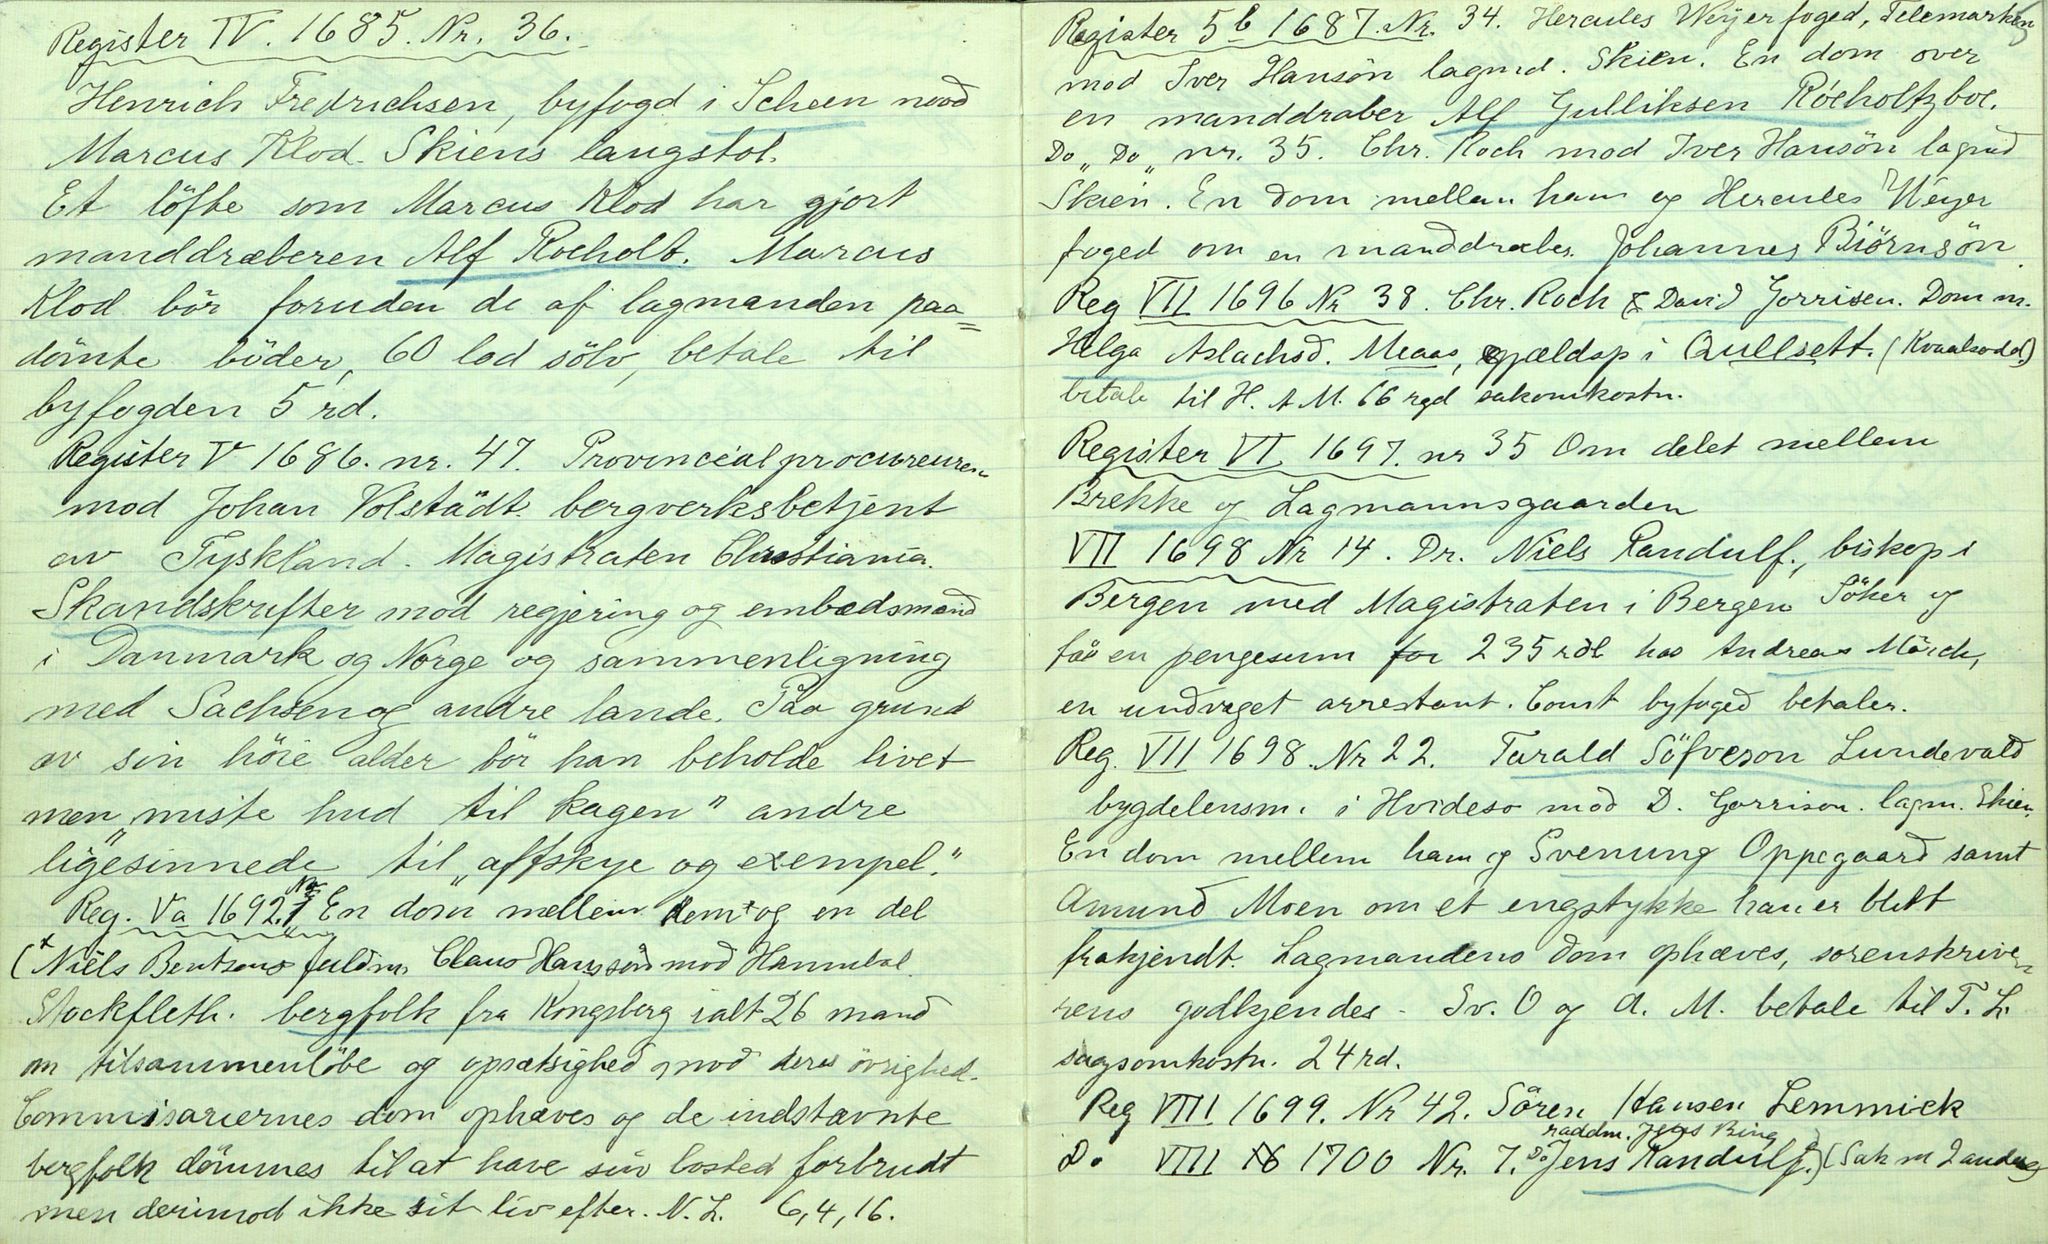 Register IV. 1685. Nr. 36.
Henrich Fredrichsen, byfogd i Scheen mod
Marcus Klod. Skiens laugstol.
Et löfte som Marcus Klod har gjort
manddræberen Alf Roeholt. Marcus
Klod bör foruden de af lagmanden paa=
dömte böder, 60 lod sölv, betale til
byfogden 5 rd.
Register V 1686. nr. 47. Provincialprocureuren
mod Johan Volstädt bergverksbetjent
av Tyskland. Magistraten Christiania.
Skandskrifter mod regjering og embedsmænd
i Danmark og Norge og sammenligning
med Sachsen og andre lande. Paa grund
av sin höie alder bör han beholde livet
men "miste hud til kagen" andre
ligesinnede til "affskye og exempel."
Reg. Va 1692. No 1 En dom mellem dem* og en del
(* Niels Bentsens fuldm. Claus Hanssön mod Hannibal
Stockfleth. bergfolk fra Kongsberg ialt 26 mand
om tilsammenlöbe og opsætsighed mod deres övrighed.
Commisariernes dom ophæves og de indstævnte
bergfolk dömmes til at have sin bosted forbrudt
men derimod ikke sit liv efter. N. L. 6, 4, 16.
Register 5b 1687. Nr. 34. Hercules Weyer foged, Telemarken
mod Iver Hansön lagmd. Skien. En dom over
en manddraber Alf Gulliksen Röeholtzboe.
Do „ Do „ nr. 35. Chr. Koch mod Iver Hansön lagmd
Skien. En dom mellem ham og Hercules Weyer
foged om en manddraber Johannes Biörnsön.
Reg VII 1696 Nr 38. Chr. Koch & David Gorrisen. Dom m.
Helga Aslachsd. Meaas, gjældsp i Qullsett. (Kvaalsodd)
betale til H. A M. 66 rgd sakomkostn.
Register VI 1697. nr 35 Om delet mellem
Brekke og Lagmannsgaarden
VII 1698 Nr 14. Dr. Niels Randulf., biskop i
Bergen med Magistraten i Bergen Söker og
får en pengesum for 235 rdl hos Andreas Mörch,
en undviget arrestant. Const byfoged betaler.
Reg. VII 1698. Nr 22. Tarald Söfveson Lundevald
bygdelensm. i Hvideso mod D. Gorrison. lagm. Skien.
En dom mellem ham og Svenung Oppegaard samt
Amund Moen om et engstykke han er blitt
frakjendt. Lagmandens dom ophæves, sorenskrive
rens godkjendes - Sv. O og A. M. betale til T. L.
sagsomkostn. 24 rd.
Reg VIII 1699. Nr 42. Sören Hansen Lemmick
raddm. Jens Bing
Do VIII 1700 Nr. 7. Do Jens Randulf.) (Sak m